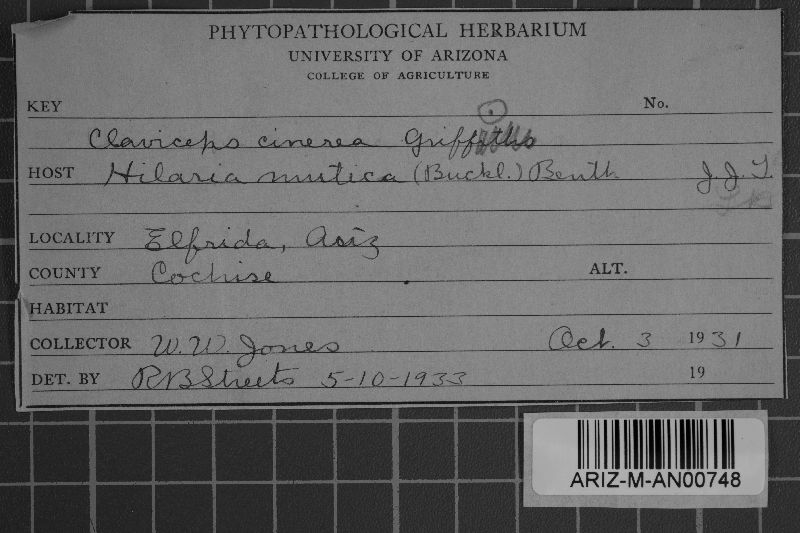 PHYTOPATHOLOGICAL HERBARIUM
UNIVERSITY OF ARIZONA
COLLEGE OF AGRICULTURE
KEY No.
Claviceps cinerea Griffiths
HOST Hilaria mutica (Buckl.) Benth J.J.T.
LOCALITY Elfrida, Ariz
COUNTY Cochise ALT.
HABITAT
COLLECTOR W.W. Jones Oct. 3 1931
DET. BY RBStreets 5-10-1933 19
ARIZ-M-AN00748